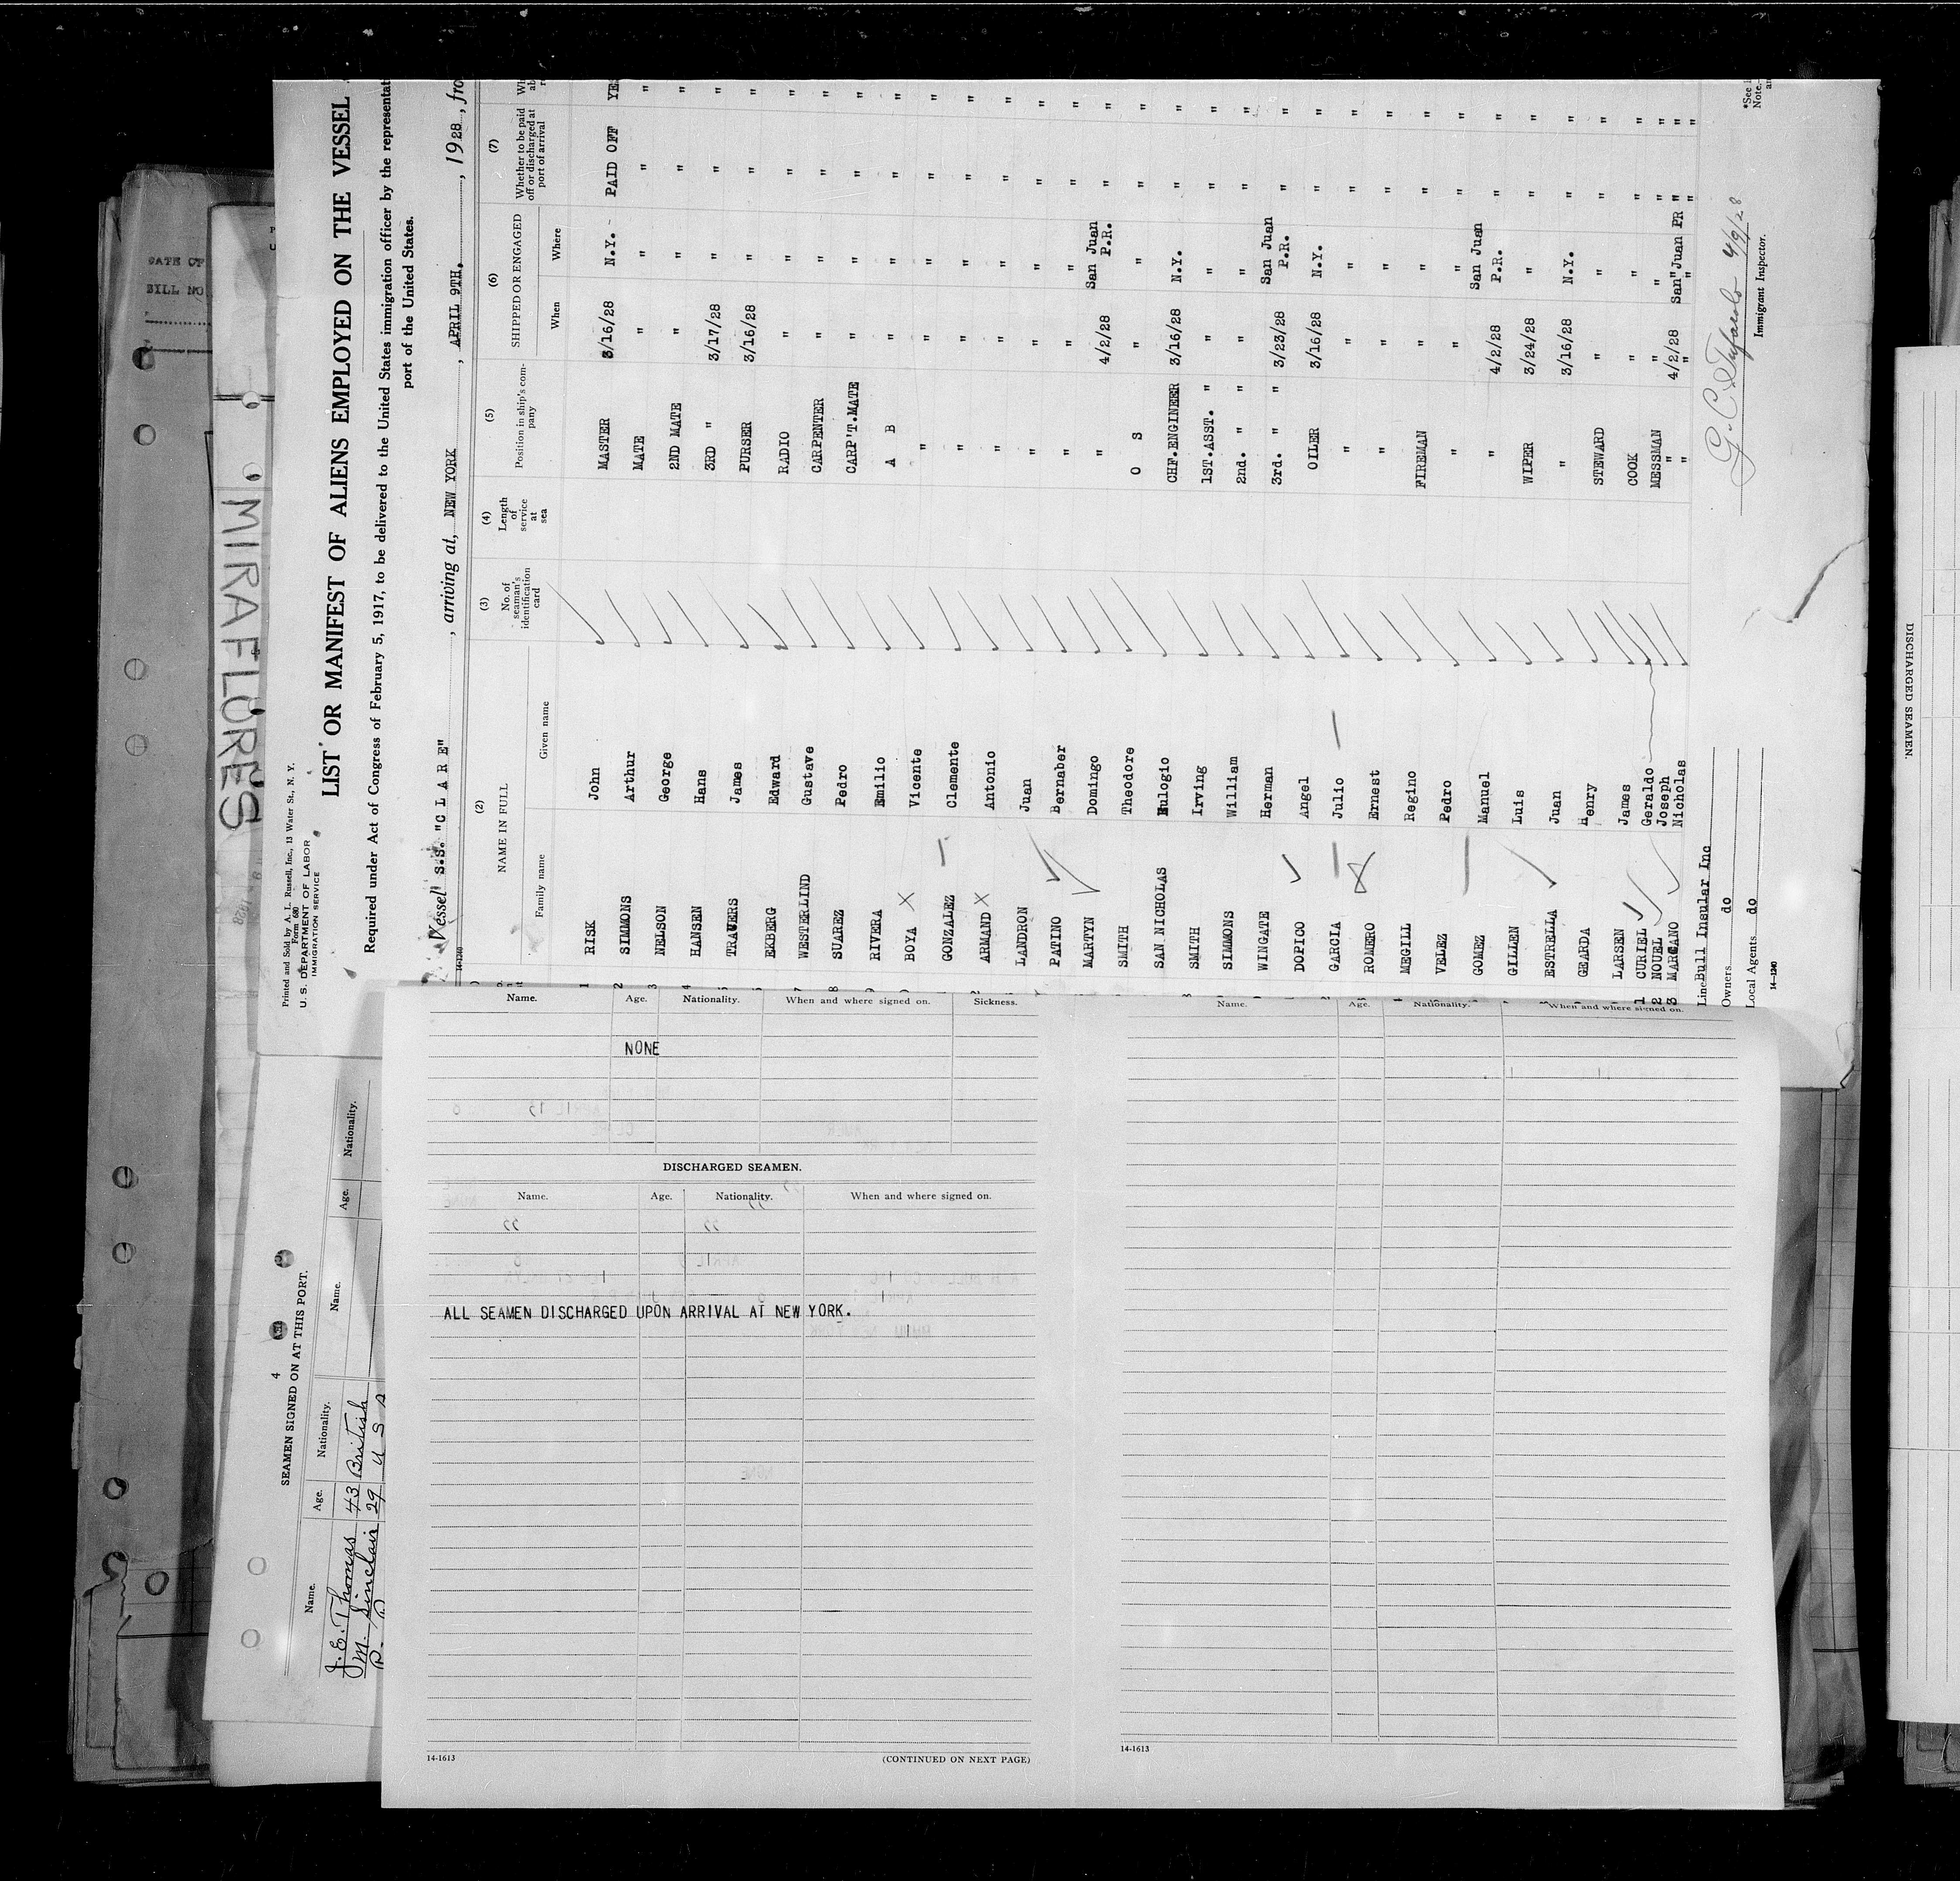 DATE OF
BILL NO
MIRAFLORES
Printed and Sold by A. L. Russell, Inc., 13 Water St., N. Y.
Form 680
U. S. DEPARTMENT OF LABOR
IMMIGRATION SERVICE
LIST OR MANIFEST OF ALIENS EMPLOYED ON THE VESSEL
Required under Act of Congress of February 5, 1917, to be delivered to the United States immigration officer by the representat
port of the United States.
Vessel S.S. "C L A R E", arriving at, NEW YORK, APRIL 9TH., 1928, fro
14-1240
(2) (3) (4) (5) (6) (7)
NAME IN FULL No. of seaman's identification card Length of service at sea Position in ship's company SHIPPED OR ENGAGED Whether to be paid off or discharged at port of arrival
Family name Given name When Where
1 RISK John MASTER 3/16/28 N.Y. PAID OFF YE
2 SIMMONS Arthur MATE " " " "
3 NELSON George 2ND MATE " " " "
4 HANSEN Hans 3RD " 3/17/28 " " "
TRAVERS James PURSER 3/16/28 " " "
EKBERG Edward RADIO " " " "
7 WESTERLIND Gustave CARPENTER " " " "
8 SUAREZ Pedro CARP'T.MATE " " " "
9 RIVERA Emilio A B " " " "
BOYA X Vicente " " " " "
GONZALEZ Clemente " " " " "
ARMAND X Antonio " " " " "
LANDRON Juan " " " " "
PATINO Bernaber " " " " "
MARTYN Domingo " 4/2/28 San Juan P.R. " "
SMITH Theodore O S " " " "
SAN NICHOLAS Eulogio CHF.ENGINEER 3/16/28 N.Y. " "
SMITH Irving 1ST.ASST. " " " " "
SIMMONS William 2nd. " " " " " "
WINGATE Herman 3rd. " " 3/23/28 San Juan P.R. " "
DOPICO Angel OILER 3/16/28 N.Y. " "
GARCIA Julio " " " " "
ROMERO Ernest " " " " "
MEGILL Regino FIREMAN " " " "
VELEZ Pedro " " " " "
GOMEZ Manuel " 4/2/28 San Juan P.R. " "
GILLEN Luis WIPER 3/24/28 " " "
ESTRELLA Juan " 3/16/28 N.Y. " "
GEARDA Henry STEWARD " " " "
LARSEN James COOK " " " "
1 CURIEL Geraldo MESSMAN " " " "
2 NOUEL Joseph " 4/2/28 San Juan PR " "
3 MARCANO Nicholas " " " " "
Line Bull Insular Inc
Owners do
Local Agents do
14-1240
4/9/28
Immigrant Inspector.
*See
Note.
Name. Age. Nationality. When and where signed on. Sickness.
NONE
DISCHARGED SEAMEN.
Name. Age. Nationality. When and where signed on.
ALL SEAMEN DISCHARGED UPON ARRIVAL AT NEW YORK.
14-1613
(CONTINUED ON NEXT PAGE)
Name. Age. Nationality. When and where signed on.
14-1613
4
SEAMEN SIGNED ON AT THIS PORT.
Name. Age. Nationality. Name. Age. Nationality.
J. E. Thomas 43 British
M. Sinclair 29 U S
DISCHARGED SEAMEN.